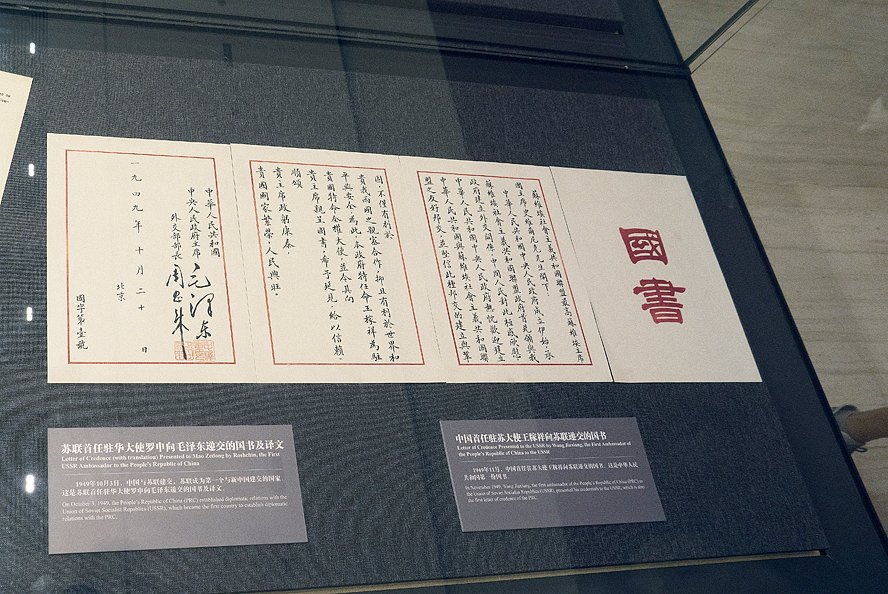 國書
蘇維埃社會主義共和國聯盟最高蘇維埃主席
團主席史維爾尼克先生閣下：
中華人民共和國中央人民政府成立伊始，承
蘇維埃社會主義共和國聯盟政府首先願與我
政府建立外交關係，中國人民對此極感欣慰。
中華人民共和國中央人民政府無任歡迎建立
中華人民共和國與蘇維埃社會主義共和國聯
盟之友好邦交，並堅信此種邦交的建立與鞏
固，不僅有利於
貴我兩國之親密合作，抑且有利於世界和
平與安全。為此，本政府特任命王稼祥為駐
貴國特命全權大使，並令其向
貴主席親呈國書，希予延見，給以信賴。
順頌
貴主席政躬康泰，
貴國國家繁榮，人民興旺。
中華人民共和國
中央人民政府主席 毛澤東
外交部部長 周恩來
一九四九年十月二十日
北京
國字第壹號
苏联首任驻华大使罗申向毛泽东递交的国书及译文
Letter of Credence (with translation) Presented to Mao Zedong by Roshchin, the First
USSR Ambassador to the People's Republic of China
1949年10月3日，中国与苏联建交。苏联成为第一个与新中国建交的国家
这是苏联首任驻华大使罗申向毛泽东递交的国书及译文。
On October 3, 1949, the People's Republic of China (PRC) established diplomatic relations with the
Union of Soviet Socialist Republics (USSR), which became the first country to establish diplomatic
relations with the PRC.
中国首任驻苏大使王稼祥向苏联递交的国书
Letter of Credence Presented to the USSR by Wang Jiaxiang, the First Ambassador of
the People's Republic of China to the USSR
1949年11月，中国首任驻苏大使王稼祥向苏联递交的国书。这是中华人民
共和国第一份国书。
In November 1949, Wang Jiaxiang, the first ambassador of the People's Republic of China (PRC) to
the Union of Soviet Socialist Republics (USSR), presented his credentials to the USSR, which is also
the first letter of credence of the PRC.